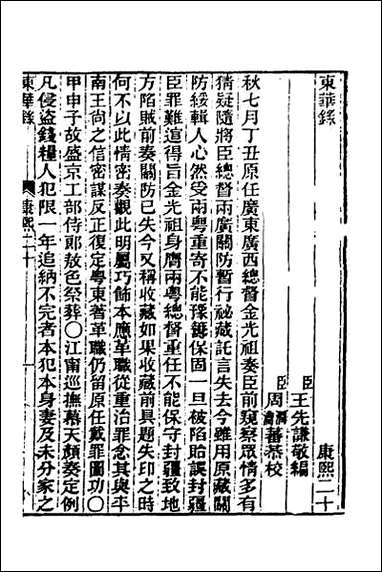 東華錄 康熙二十
臣王先謙敬編
臣周潤蕃恭校
秋七月丁丑原任廣東廣西總督金光祖奏臣前窺察眾情多有
猜疑隨將臣總督兩廣關防暫行祕藏託言失去今雖用原藏關
防綏輯人心然受兩粵重寄不能豫籌保固一旦被陷貽誤封疆
臣罪難逭得旨金光祖身膺兩粵總督重任不能保守封疆致地
方陷賊前奏關防已失今又稱收藏如果收藏前具題失印之時
何不以此情密奏觀此明屬巧飾本應革職從重治罪念其與平
南王尚之信密謀反正復定粵東著革職仍留原任戴罪圖功〇
甲申予故盛京工部侍郎敖色祭葬〇江甯巡撫慕天顏奏定例
凡侵盜錢糧人犯限一年追納不完者本犯本身妻及未分家之
東華錄 康熙二十 一